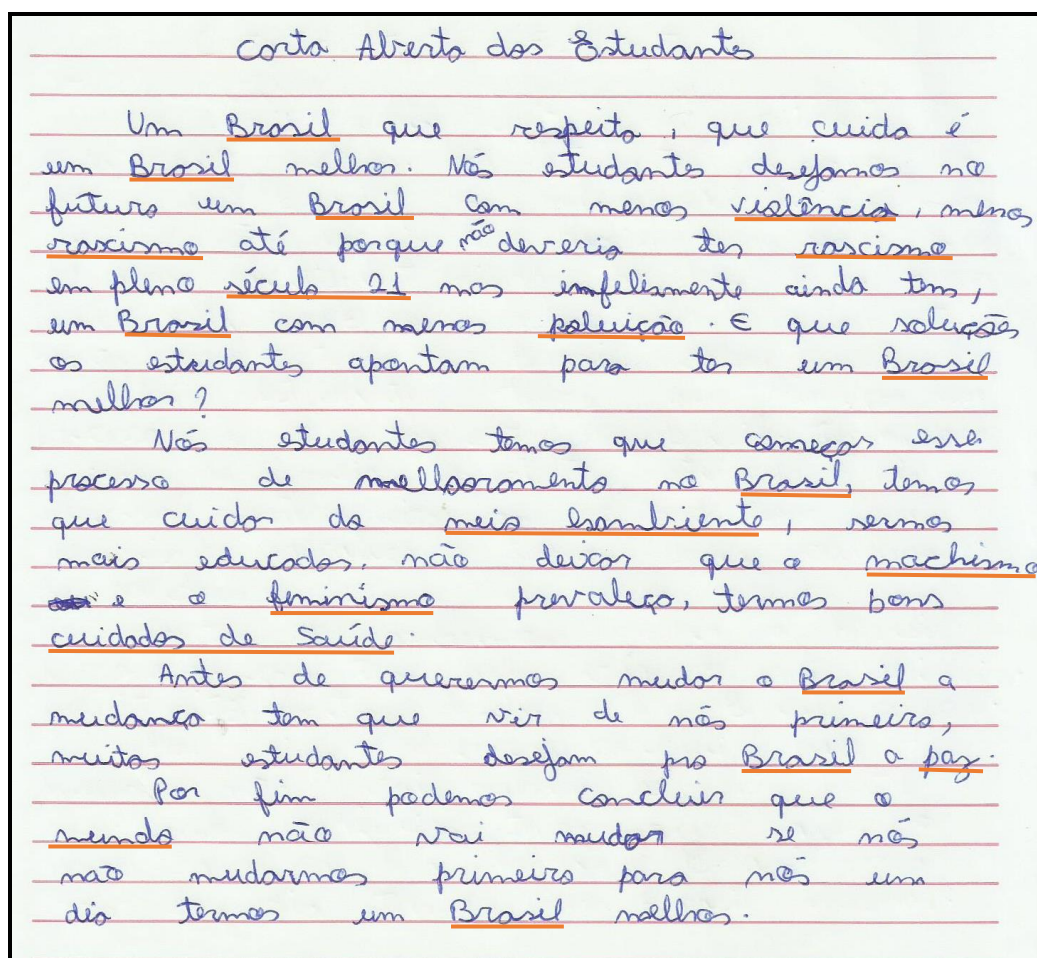 Carta Aberta dos Estudantes
Um Brasil que respeita, que cuida é
um Brasil melhor. Nós estudantes desejamos no
futuro um Brasil com menos violência, menos
rascismo até porque não deveria ter rascismo
em pleno século 21 mas infelismente ainda tem,
um Brasil com menos poluição. E que soluções
os estudantes apontam para ter um Brasil
melhor?
Nós estudantes temos que começar esse
processo de melhoramento no Brasil, temos
que cuidar do meio ambiente, sermos
mais educados, não deixar que o machismo
e o feminismo prevaleça, termos bons
cuidados de Saúde.
Antes de querermos mudar o Brasil a
mudança tem que vir de nós primeiro,
muitos estudantes desejam pro Brasil a paz.
Por fim podemos concluir que o
mundo não vai mudar se nós
não mudarmos primeiro para nós um
dia termos um Brasil melhor.